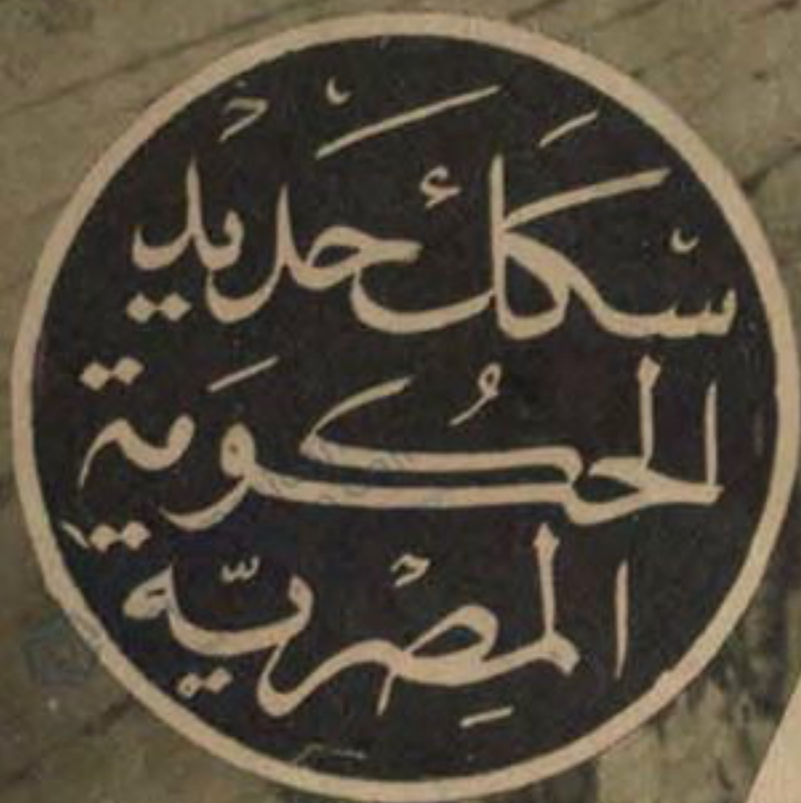 سكك حديد
الحكومة
المصرية